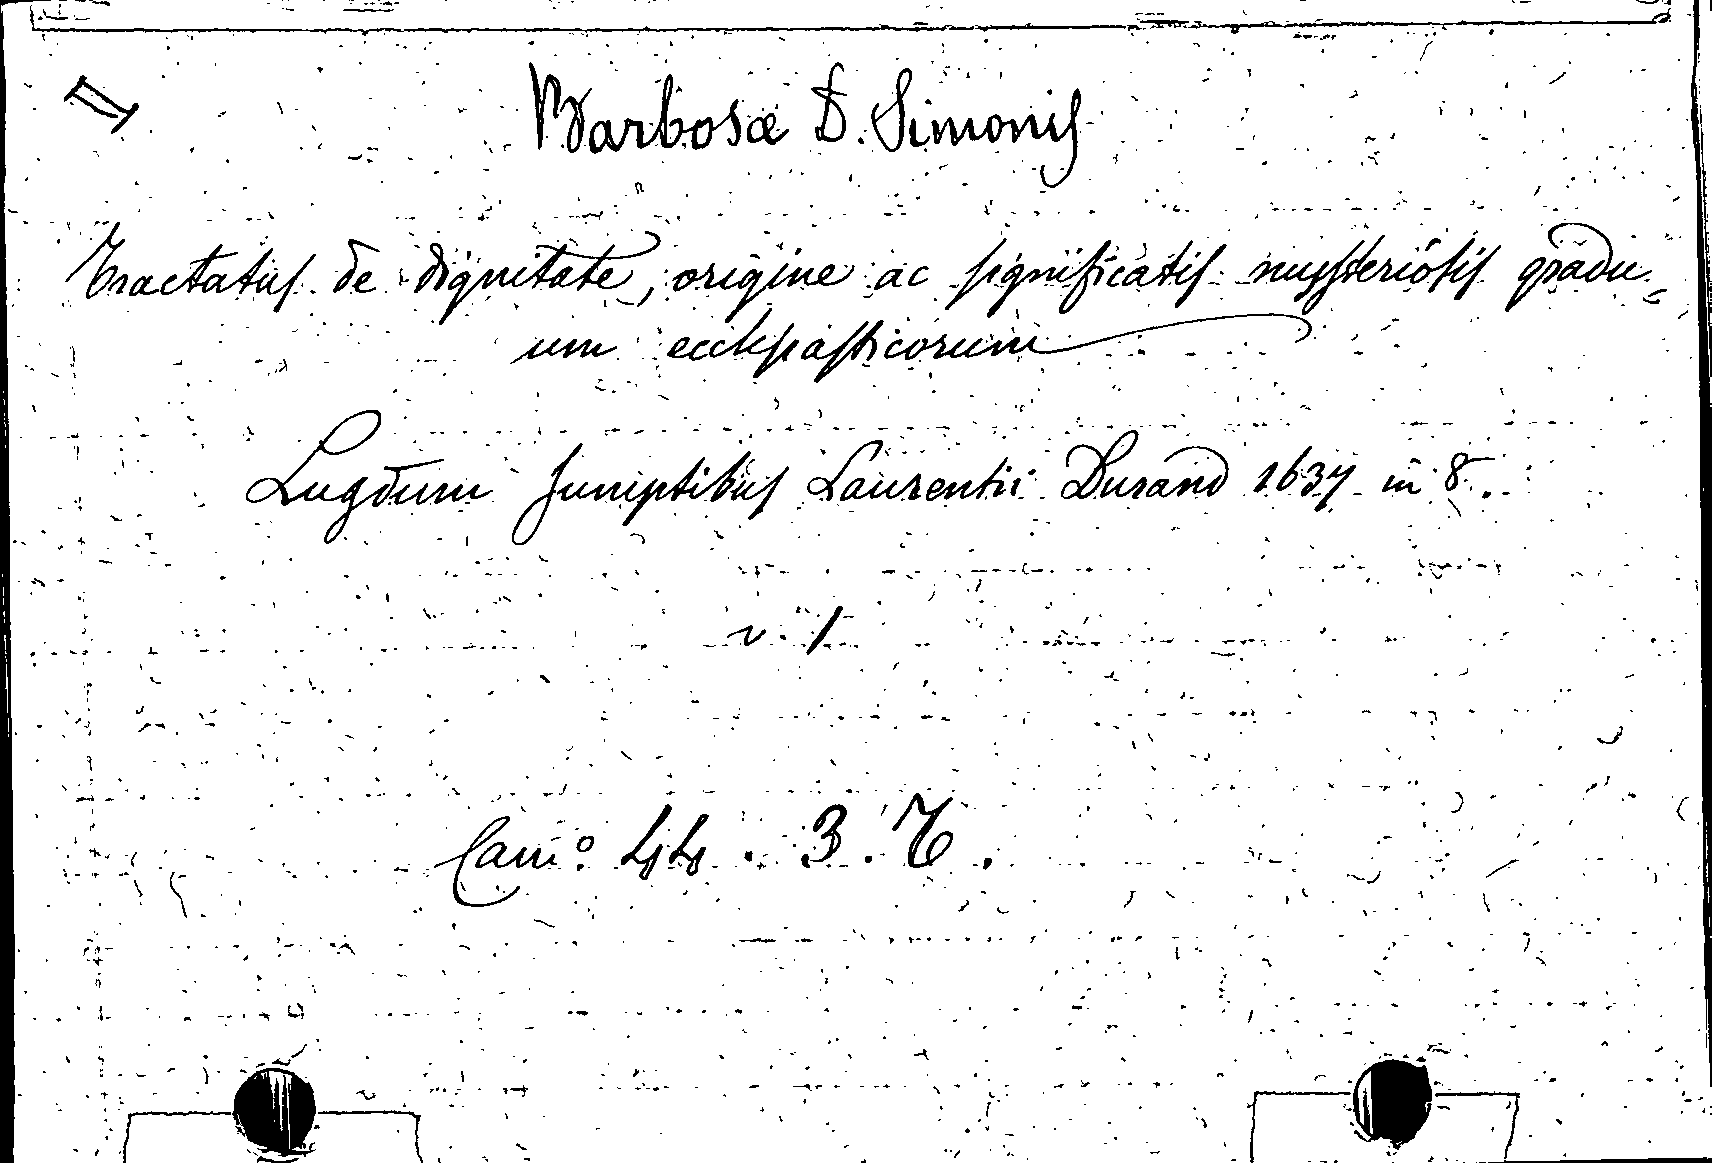 Barbosæ D. Simonis
Tractatus de dignitate, origine ac significatis mysteriosis gradu=
um ecclesiasticorum
Lugduni sumptibus Laurentii Durand 1637 in 8.
v. 1
Cam.º 44. 3.